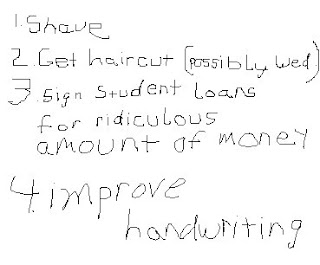 1. Shave
2. Get haircut (possibly wed)
3. Sign student loans
for ridiculous
amount of money
4. improve
handwriting